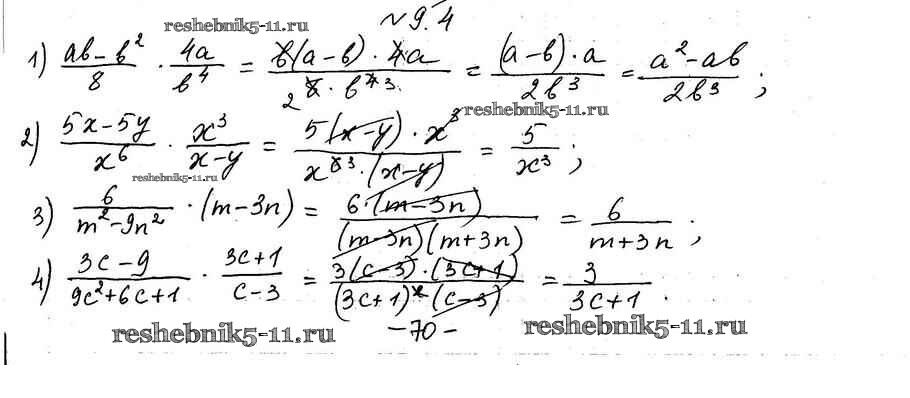 № 9.4
reshebnik5-11.ru
1) (ab-b²)/8 · 4a/b⁴ = (b(a-b) · 4a)/(2 8 · b⁴ ³) = ((a-b) · a)/(2b³) = (a²-ab)/(2b³) ;
reshebnik5-11.ru
2) (5x-5y)/x⁶ · x³/(x-y) = (5(x-y) · x³)/(x⁶ ³ · (x-y)) = 5/x³ ;
reshebnik5-11.ru
3) 6/(m²-9n²) · (m-3n) = (6 · (m-3n))/((m-3n)(m+3n)) = 6/(m+3n) ;
4) (3c-9)/(9c²+6c+1) · (3c+1)/(c-3) = (3(c-3) · (3c+1))/((3c+1)² (c-3)) = 3/(3c+1) .
reshebnik5-11.ru -70- reshebnik5-11.ru